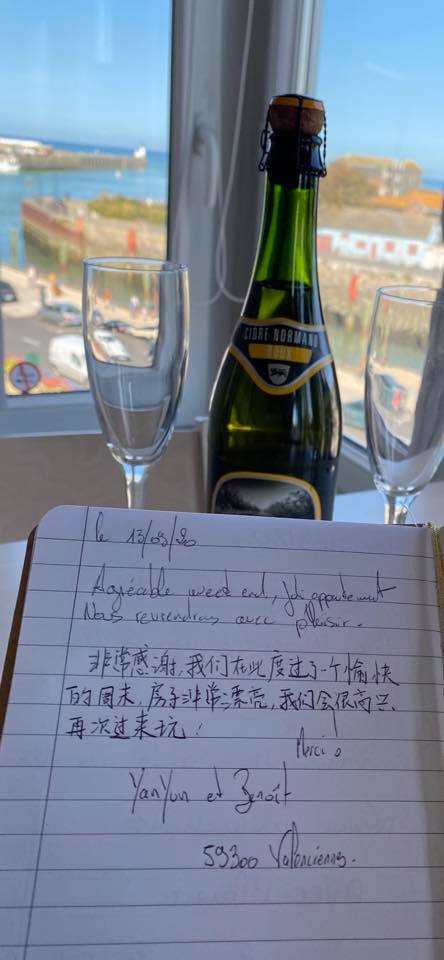 CIDRE NORMAND
DOUX
le 13/09/20
Agréable week end, Joli appartement
Nous reviendrons avec plaisir.
非常感谢,我们在此度过了一个愉快
的周末,房子非常漂亮,我们会很高兴
再次过来玩!
Merci
YanYun et Benoît
59300 Valenciennes.